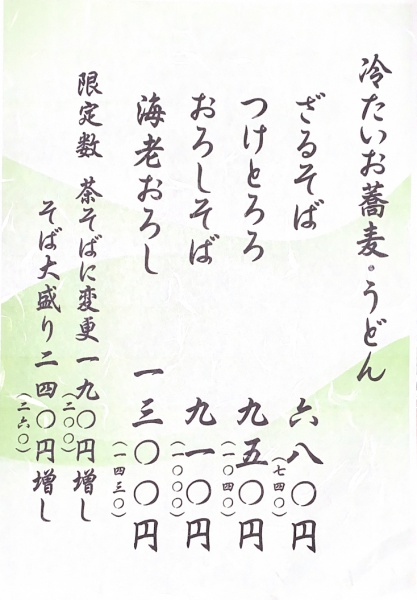 冷たいお蕎麦・うどん
ざるそば 六八〇円
(七四〇)
つけとろろ 九五〇円
(一〇四〇)
おろしそば 九一〇円
(一〇〇〇)
海老おろし 一三〇〇円
(一四三〇)
限定数 茶そばに変更 一九〇円増し
(二〇〇)
そば大盛り 二四〇円増し
(二六〇)